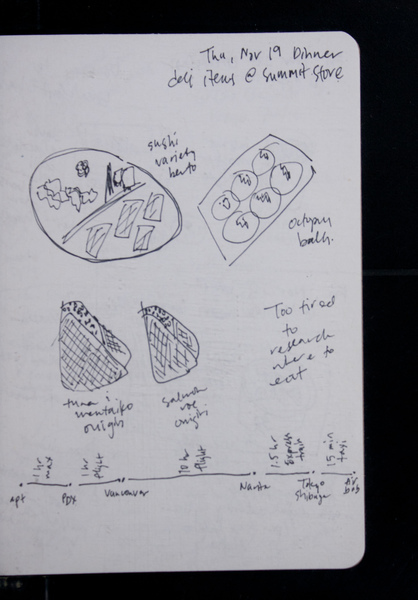 Thu, Nov 19 Dinner
deli items @ summit store
sushi
variety
bento
octopus
balls.
tuna &
mentaiko
onigiri
salmon
roe
onigiri
Too tired
to
research
where to
eat
1 hr
max
1 hr
flight
10 hr
flight
1.5 hr
Express
train
15 min
taxi
apt
PDX
Vancouver
Narita
Tokyo
Shibuya
air
bnb